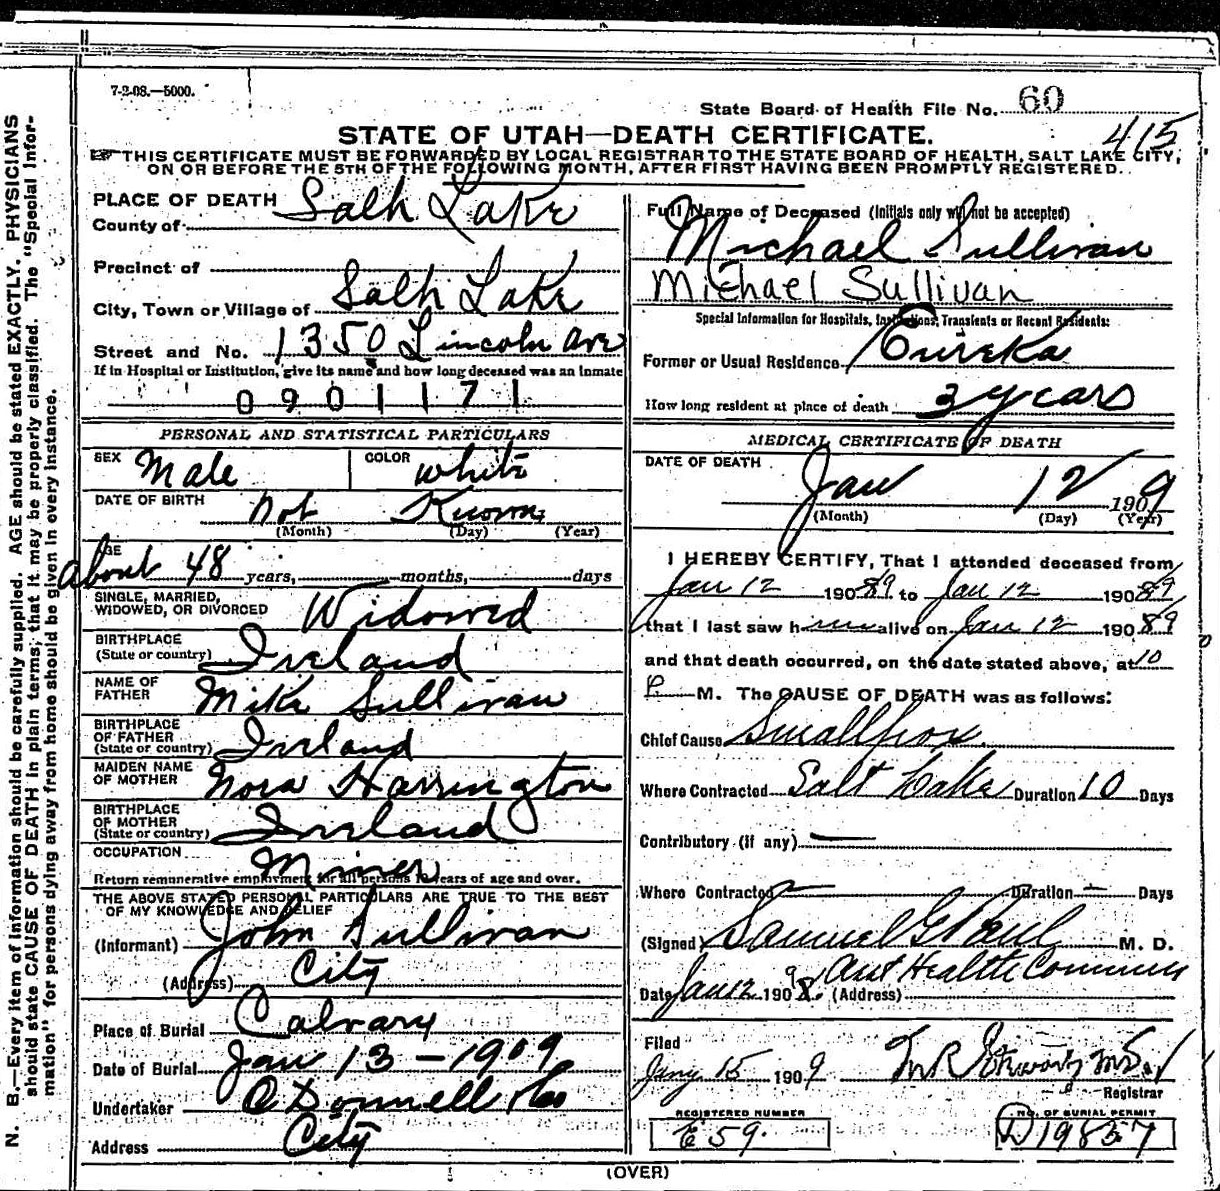 7-2-08.—5000.
State Board of Health File No. 60
415
STATE OF UTAH—DEATH CERTIFICATE.
THIS CERTIFICATE MUST BE FORWARDED BY LOCAL REGISTRAR TO THE STATE BOARD OF HEALTH, SALT LAKE CITY,
ON OR BEFORE THE 5TH OF THE FOLLOWING MONTH, AFTER FIRST HAVING BEEN PROMPTLY REGISTERED.
N. B.—Every item of Information should be carefully supplied. AGE should be stated EXACTLY. PHYSICIANS
should state CAUSE OF DEATH in plain terms; that it may be properly classified. The "Special Infor-
mation" for persons dying away from home should be given in every instance.
PLACE OF DEATH
County of Salt Lake
Precinct of
City, Town or Village of Salt Lake
Street and No. 1350 Lincoln Ave
If in Hospital or Institution, give its name and how long deceased was an inmate
0901171
PERSONAL AND STATISTICAL PARTICULARS
SEX Male COLOR White
DATE OF BIRTH Not Known
(Month) (Day) (Year)
AGE about 48 years, months, days
SINGLE, MARRIED,
WIDOWED, OR DIVORCED Widowed
BIRTHPLACE
(State or country) Ireland
NAME OF
FATHER Mike Sullivan
BIRTHPLACE
OF FATHER
(State or country) Ireland
MAIDEN NAME
OF MOTHER Nora Harrington
BIRTHPLACE
OF MOTHER
(State or country) Ireland
OCCUPATION Miner
Return remunerative employment for all persons 10 years of age and over.
THE ABOVE STATED PERSONAL PARTICULARS ARE TRUE TO THE BEST
OF MY KNOWLEDGE AND BELIEF
(Informant) John Sullivan
(Address) City
Place of Burial Calvary
Date of Burial Jan 13 - 1909
Undertaker O Donnell & Co
Address City
Full Name of Deceased (Initials only will not be accepted)
Michael Sullivan
Michael Sullivan
Special Information for Hospitals, Institutions, Transients or Recent Residents:
Former or Usual Residence Eureka
How long resident at place of death 3 years
MEDICAL CERTIFICATE OF DEATH
DATE OF DEATH
Jan 12 1909
(Month) (Day) (Year)
I HEREBY CERTIFY, That I attended deceased from
Jan 12 19089 to Jan 12 19089
that I last saw him alive on Jan 12 19089
and that death occurred, on the date stated above, at 10
P M. The CAUSE OF DEATH was as follows:
Chief Cause Smallpox
Where Contracted Salt Lake Duration 10 Days
Contributory (if any) —
Where Contracted — Duration — Days
(Signed) Samuel G Paul M. D.
Date Jan 12 1908 9 (Address) Asst Health Commr
Filed
Jany 15 1909
Registrar
REGISTERED NUMBER
E 59.
NO. OF BURIAL PERMIT
D 19857
(OVER)